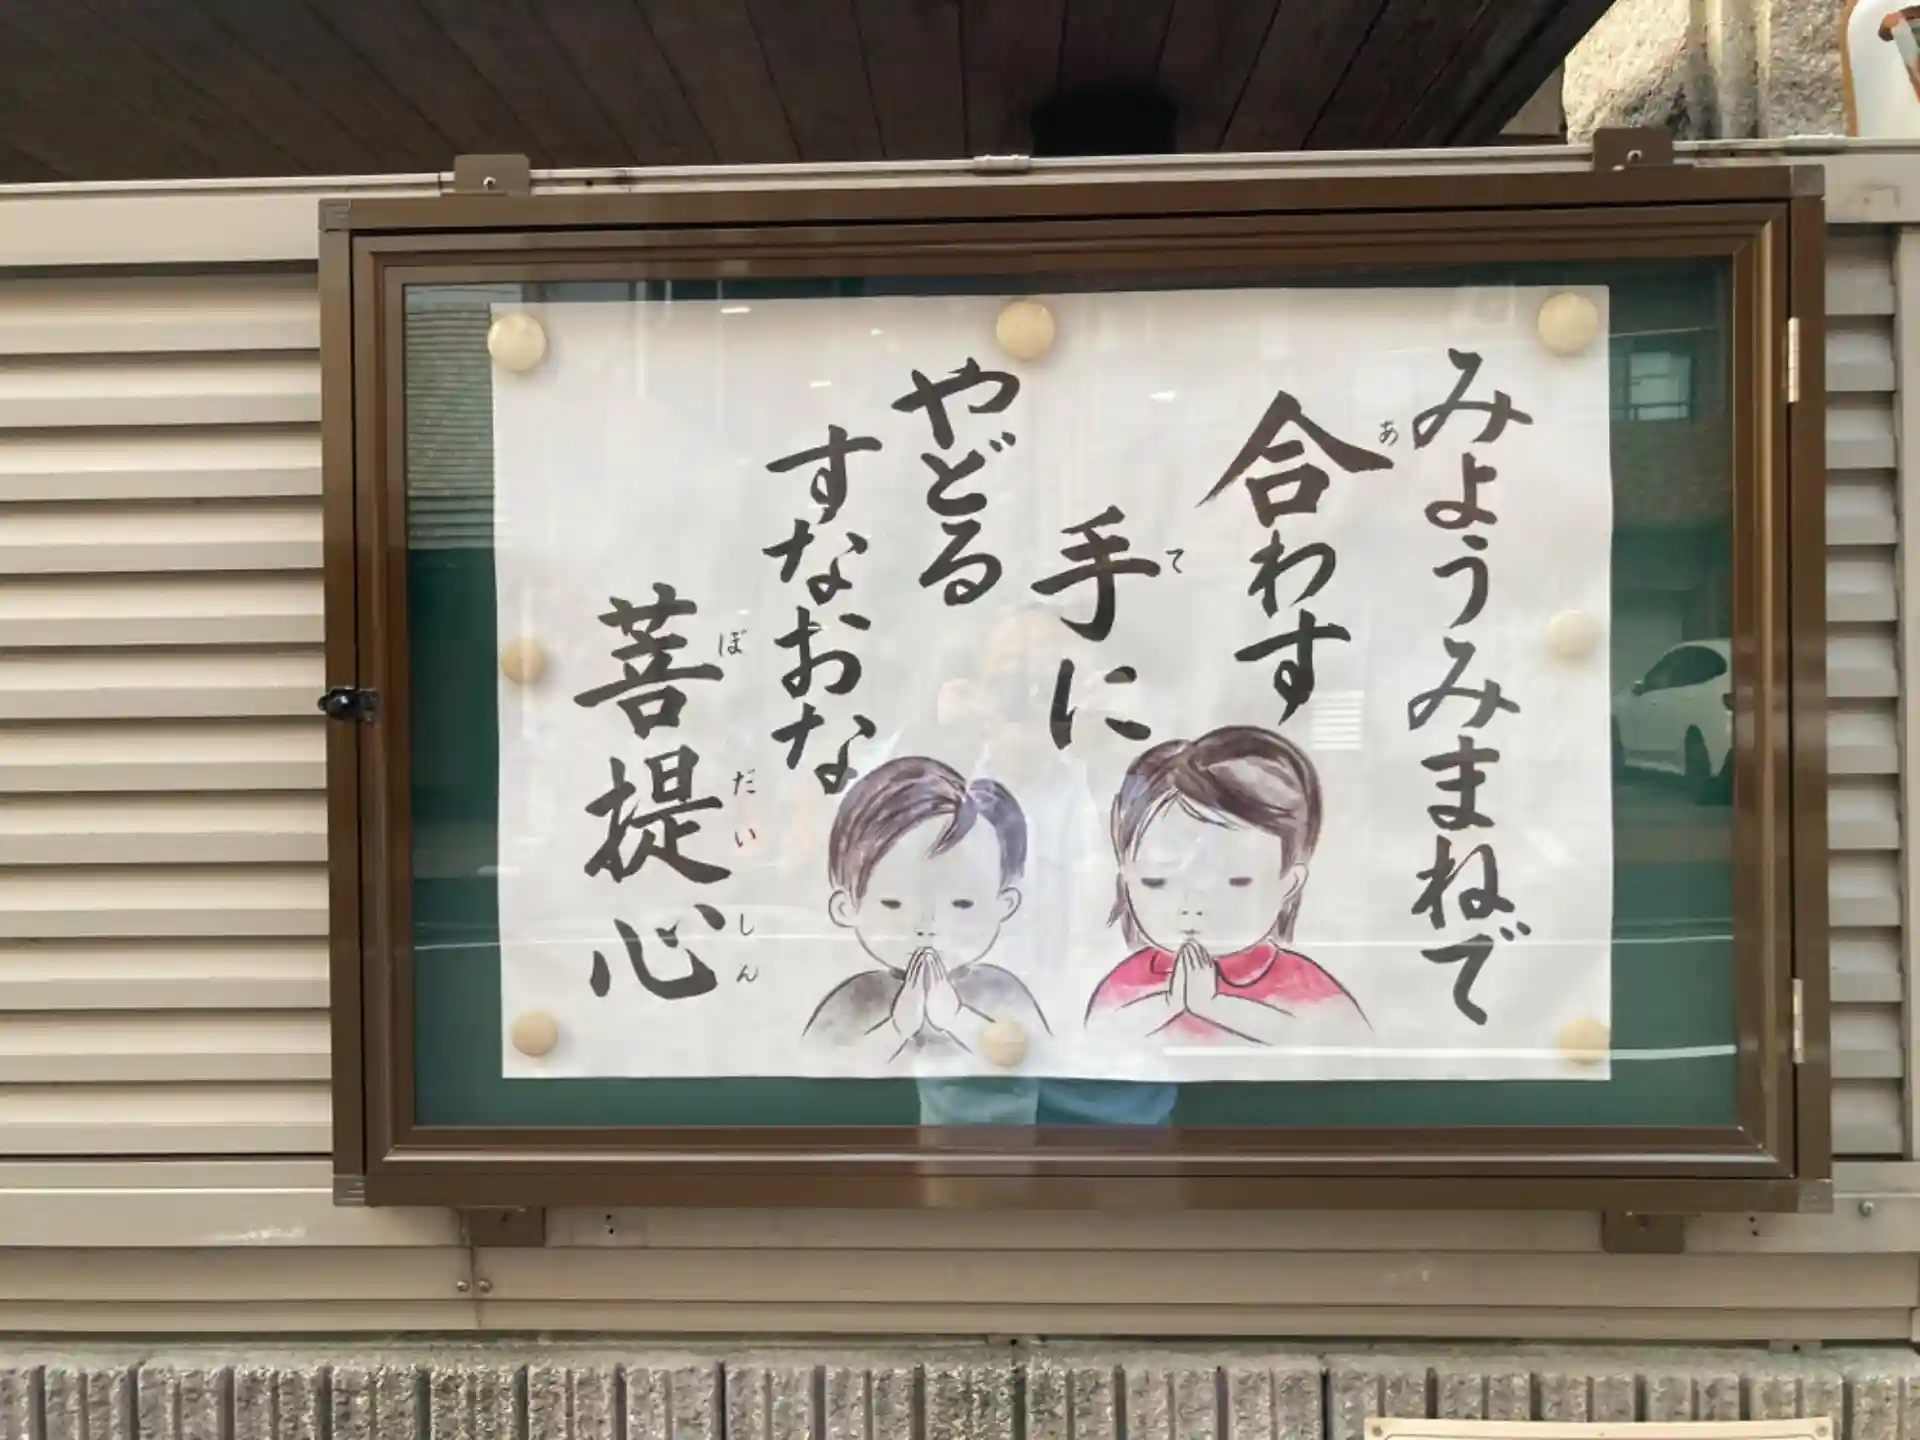 みようみまねで
合わす
手に
やどる
すなおな
菩提心
あ
て
ぼ
だい
しん